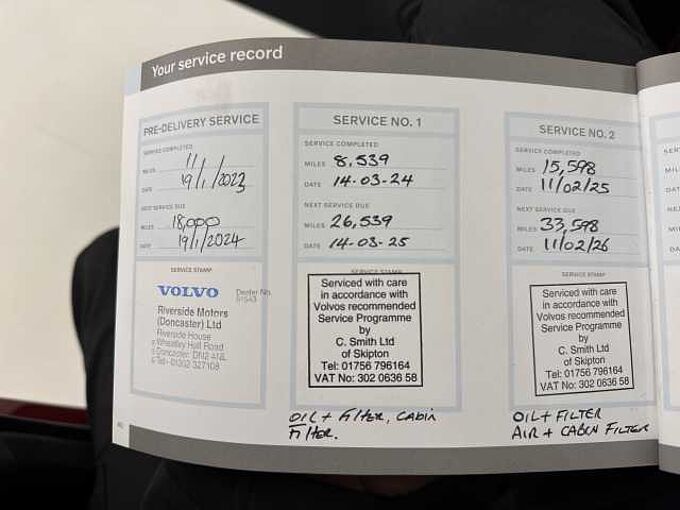 Your service record
PRE-DELIVERY SERVICE
SERVICE COMPLETED
MILES 11
DATE 19/1/2023
NEXT SERVICE DUE
MILES 18,000
DATE 19/1/2024
SERVICE STAMP
VOLVO
Dealer No.
51543
Riverside Motors
(Doncaster) Ltd
Riverside House
Wheatley Hall Road
Doncaster DN2 4NL
Tel: 01302 327108
SERVICE NO. 1
SERVICE COMPLETED
MILES 8,539
DATE 14-03-24
NEXT SERVICE DUE
MILES 26,539
DATE 14-03-25
SERVICE STAMP
Serviced with care
in accordance with
Volvos recommended
Service Programme
by
C. Smith Ltd
of Skipton
Tel: 01756 796164
VAT No: 302 0636 58
OIL + FilTER, CABin
FilTER.
SERVICE NO. 2
SERVICE COMPLETED
MILES 15,598
DATE 11/02/25
NEXT SERVICE DUE
MILES 33,598
DATE 11/02/26
SERVICE STAMP
Serviced with care
in accordance with
Volvos recommended
Service Programme
by
C. Smith Ltd
of Skipton
Tel: 01756 796164
VAT No: 302 0636 58
OIL + FILTER
AIR + CABIN FILTER